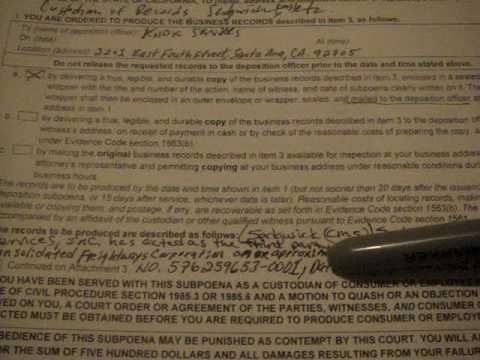 Custodian of Records Sedgwick
1. YOU ARE ORDERED TO PRODUCE THE BUSINESS RECORDS described in item 3, as follows:
To (name of deposition officer): Knox Services
On (date): At (time):
Location (address): 2201 East Fourth Street, Santa Ana, CA. 92705
Do not release the requested records to the deposition officer prior to the date and time stated above.
a. by delivering a true, legible, and durable copy of the business records described in item 3, enclosed in a sealed
wrapper with the title and number of the action, name of witness, and date of subpoena clearly written on it. The
wrapper shall then be enclosed in an outer envelope or wrapper, sealed, and mailed to the deposition officer
address in item 1.
b. by delivering a true, legible, and durable copy of the business records described in item 3 to the deposition
witness's address, on receipt of payment in cash or by check of the reasonable costs of preparing the copy,
under Evidence Code section 1563(b).
c. by making the original business records described in item 3 available for inspection at your business address
attorney's representative and permitting copying at your business address under reasonable conditions during
business hours.
records are to be produced by the date and time shown in item 1 (but not sooner than 20 days after the issuance
deposition subpoena, or 15 days after service, whichever date is later). Reasonable costs of locating records, making
available or copying them, and postage, if any, are recoverable as set forth in Evidence Code section 1563(b).
accompanied by an affidavit of the custodian or other qualified witness pursuant to Evidence Code section 1561.
records to be produced are described as follows: Sedgwick (CMS)
Services, Inc. has acted as the third
Consolidated Freightways Corporation
Continued on Attachment 3. NO. 576259653-0001,
YOU HAVE BEEN SERVED WITH THIS SUBPOENA AS A CUSTODIAN OF CONSUMER OR EMPLOYEE
OF CIVIL PROCEDURE SECTION 1985.3 OR 1985.6 AND A MOTION TO QUASH OR AN OBJECTION
ON YOU, A COURT ORDER OR AGREEMENT OF THE PARTIES, WITNESSES, AND CONSUMER
MUST BE OBTAINED BEFORE YOU ARE REQUIRED TO PRODUCE CONSUMER OR
OBEDIENCE OF THIS SUBPOENA MAY BE PUNISHED AS CONTEMPT BY THIS COURT. YOU WILL
FOR THE SUM OF FIVE HUNDRED DOLLARS AND ALL DAMAGES RESULTING FROM YOUR